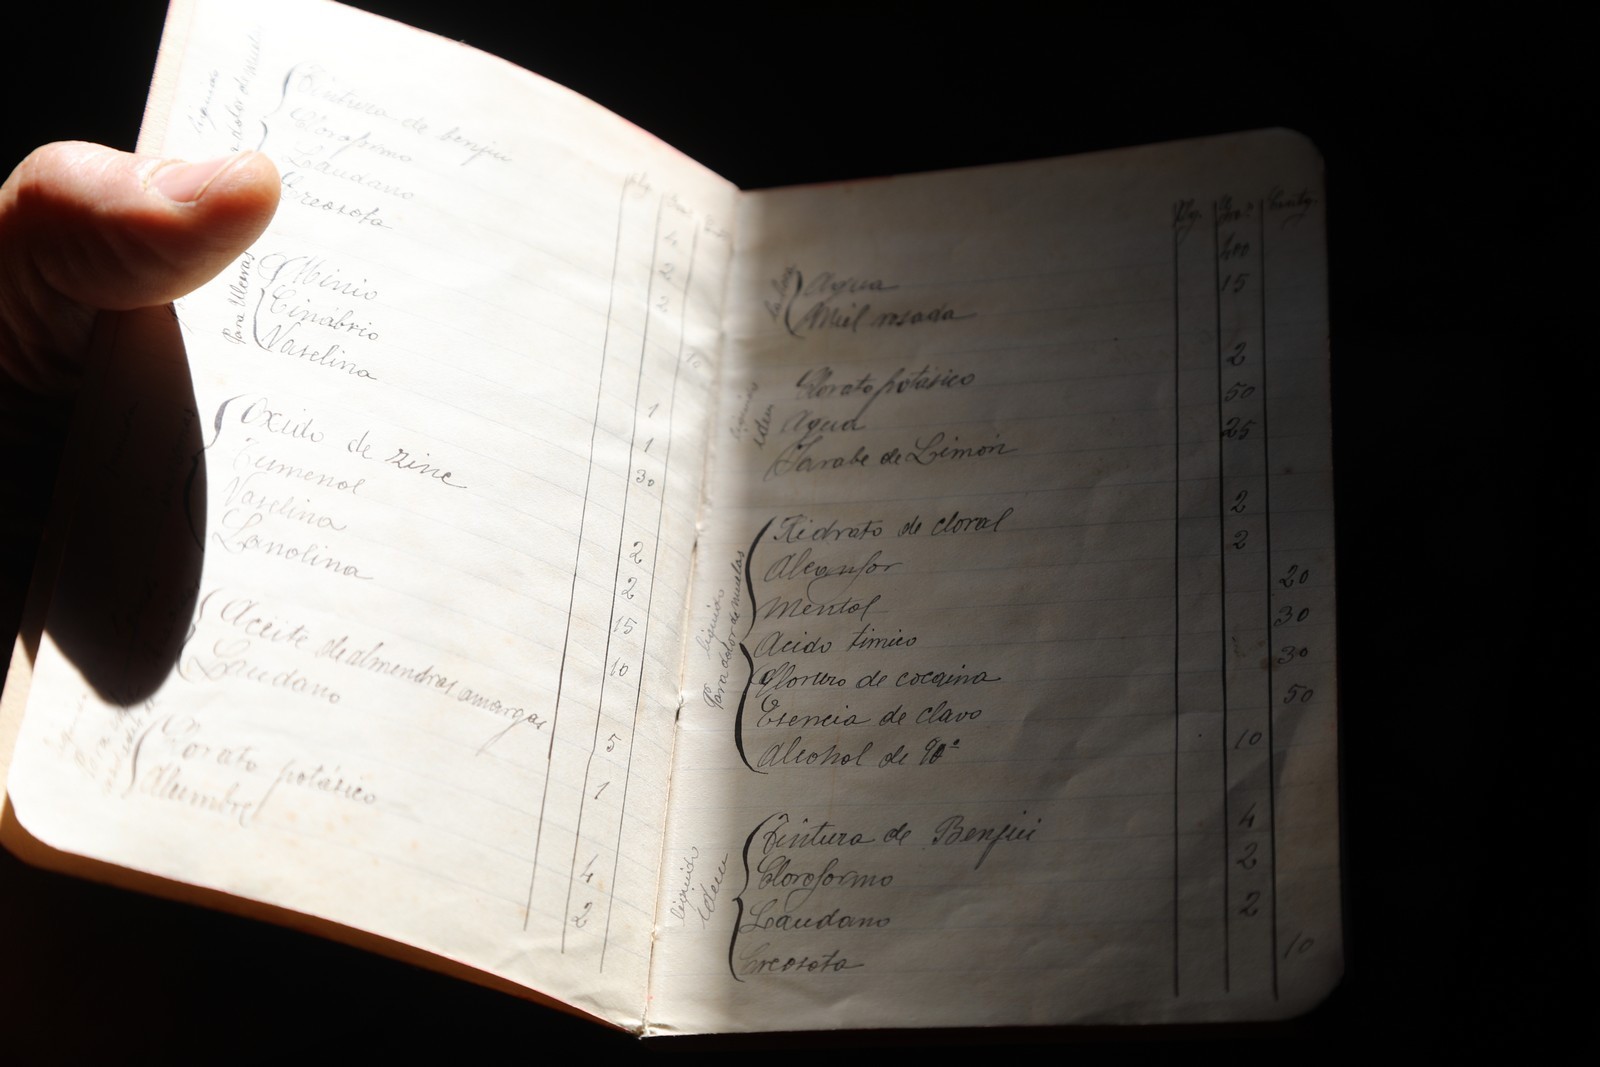 líquido
dolor de muelas
Tintura de benjui
Cloroformo
Laudano
Creosota
Gra.
4
2
2
10
Para Ulceras
Minio
Cinabrio
Vaselina
1
1
30
Oxido de zinc
Tumenol
Vaselina
Lanolina
2
2
15
10
Aceite de almendras amargas
Laudano
5
1
Para
Clorato potásico
Alumbre
4
2
Gra.
Agua 400
Miel rosada 15
líquido
idem
Clorato potásico 2
Agua 50
Jarabe de Limón 25
líquido
Para dolor de muelas
Hidrato de cloral 2
Alcanfor 2
Mentol 20
Acido timico 30
Cloruro de cocaina 30
Esencia de clavo 50
Alcohol de 90º 10
líquido
idem
Tintura de Benjui 4
Cloroformo 2
Laudano 2
Creosota 10